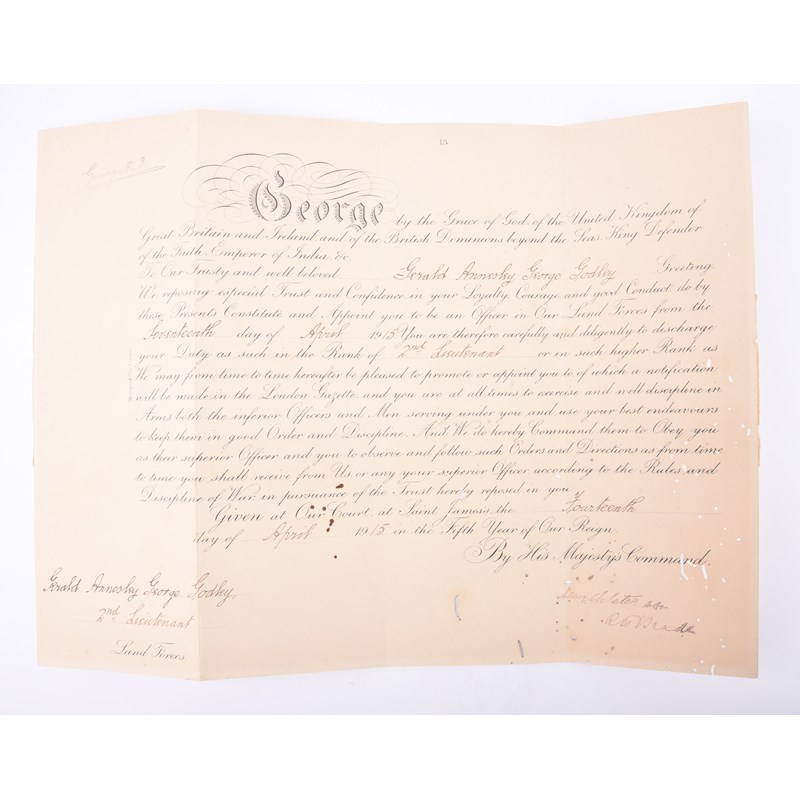 15
George
by the Grace of God, of the United Kingdom of
Great Britain and Ireland and of the British Dominions beyond the Seas King, Defender
of the Faith, Emperor of India, &c.
To Our Trusty and well beloved Gerald Annesley George Godley Greeting
We reposing especial Trust and Confidence in your Loyalty, Courage and good Conduct, do by
these Presents Constitute and Appoint you to be an Officer in Our Land Forces from the
Seventeenth day of April 1915 You are therefore carefully and diligently to discharge
your Duty as such in the Rank of 2nd Lieutenant or in such higher Rank as
We may from time to time hereafter be pleased to promote or appoint you to of which a notification
will be made in the London Gazette, and you are at all times to exercise and well discipline in
Arms both the inferior Officers and Men serving under you and use your best endeavours
to keep them in good Order and Discipline. And We do hereby Command them to Obey you
as their superior Officer and you to observe and follow such Orders and Directions as from time
to time you shall receive from Us or any your superior Officer, according to the Rules and
Discipline of War, in pursuance of the Trust hereby reposed in you
Given at Our Court, at Saint James's, the Fourteenth
day of April 1915 in the Fifth Year of Our Reign
By His Majesty's Command.
Gerald Annesley George Godley
2nd Lieutenant
Land Forces